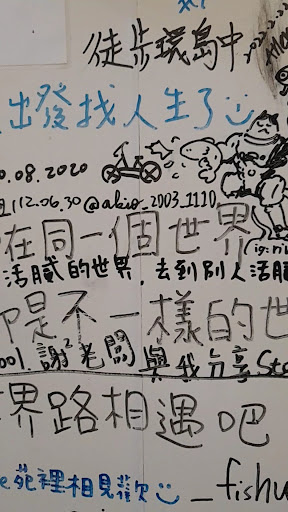 徒步環島中
2022.2.22
出發找人生了
.08.2020
112.06.30@akio_2003_1110
在同一個世界
活膩的世界，去到別人活膩
是不一樣的世
001. 謝²老闆與我分享Sto
界路相遇吧
苑裡相見歡
_fishu